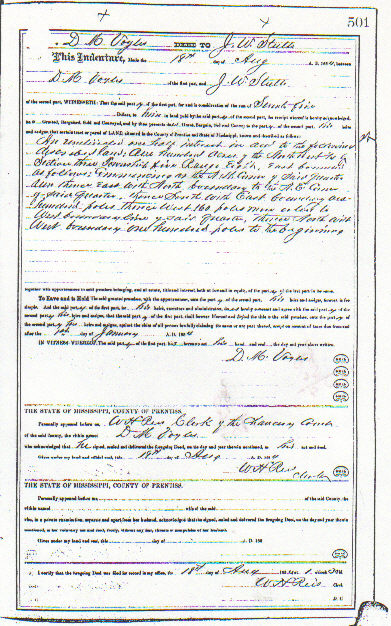 501
D. M. Vogler DEED TO J. W. Stutts
This Indenture, Made the 18th day of Aug A. D. between
D. M. Vogler of the first part, and J. W. Stutts
of the second part, WITNESSETH: That the said party of the first part, for and in consideration of the sum of Seventy five
Dollars, to him in hand paid by the said party of the second part, the receipt whereof is hereby
Granted, Bargained, Sold and Conveyed, and by these presents Grant, Bargain, Sell and Convey, to the party of the second part, his
heirs and assigns that certain tract or parcel of LAND, situated in the County of Prentiss and State of Mississippi, known and described as follows:
An undivided one half interest in and to the following
described land; One hundred acres of the North East 1/4
Section three Township five Range and bounded
as follows: Commencing at the N.W. Corner of said Quarter
thence East with North boundary to the N.E. Corner
of said Quarter, thence South with East boundary one
hundred poles, thence West 160 poles more or less to
West boundary line of said Quarter, thence North with
West boundary one hundred poles to the beginning
together with appurtenances to said premises belonging, and all estate, title and interest both at law and in equity, of the party of the first part to the same
To Have and to Hold The said granted premises, with the appurtenances, unto the party of the second part, his heirs and assigns, forever in fee
simple. And the said party of the first part, for his heirs, executors and administrators, do hereby covenant and agree with the said party of the
second part his heirs and assigns, that the said party of the first part shall forever Warrant and Defend the title to the said premises, unto the party of
the second part, his heirs and assigns, against the claim of all persons lawfully claiming the same or any part thereof, except on account of taxes due from and
after the 1st day of January
IN WITNESS WHEREOF, The said party of the first part has hereunto set his hand and seal the day and year above written.
D. M. Vogler
THE STATE OF MISSISSIPPI, COUNTY OF PRENTISS.
Personally appeared before me W H Rees Clerk of the Chancery Court
of the said County, the within named D. M. Vogler
who acknowledged that he signed, sealed and delivered the foregoing Deed, on the day and year therein mentioned, as his act and deed.
Given under my hand and official seal, this 18th day of Aug
W H Rees
Clerk
THE STATE OF MISSISSIPPI, COUNTY OF PRENTISS.
Personally appeared before me of the said County, the
within named wife of the said
who, in a private examination, separate and apart from her husband, acknowledged that she signed, sealed and delivered the foregoing Deed, on the day and year therein
mentioned, as her voluntary act and deed, freely, without any fear, threats or compulsion of her husband.
Given under my hand and official seal, this day of A. D. 188
I certify that the foregoing Deed was filed for record in my office, on the 18th day of Aug
W H Rees Clerk
D. C.